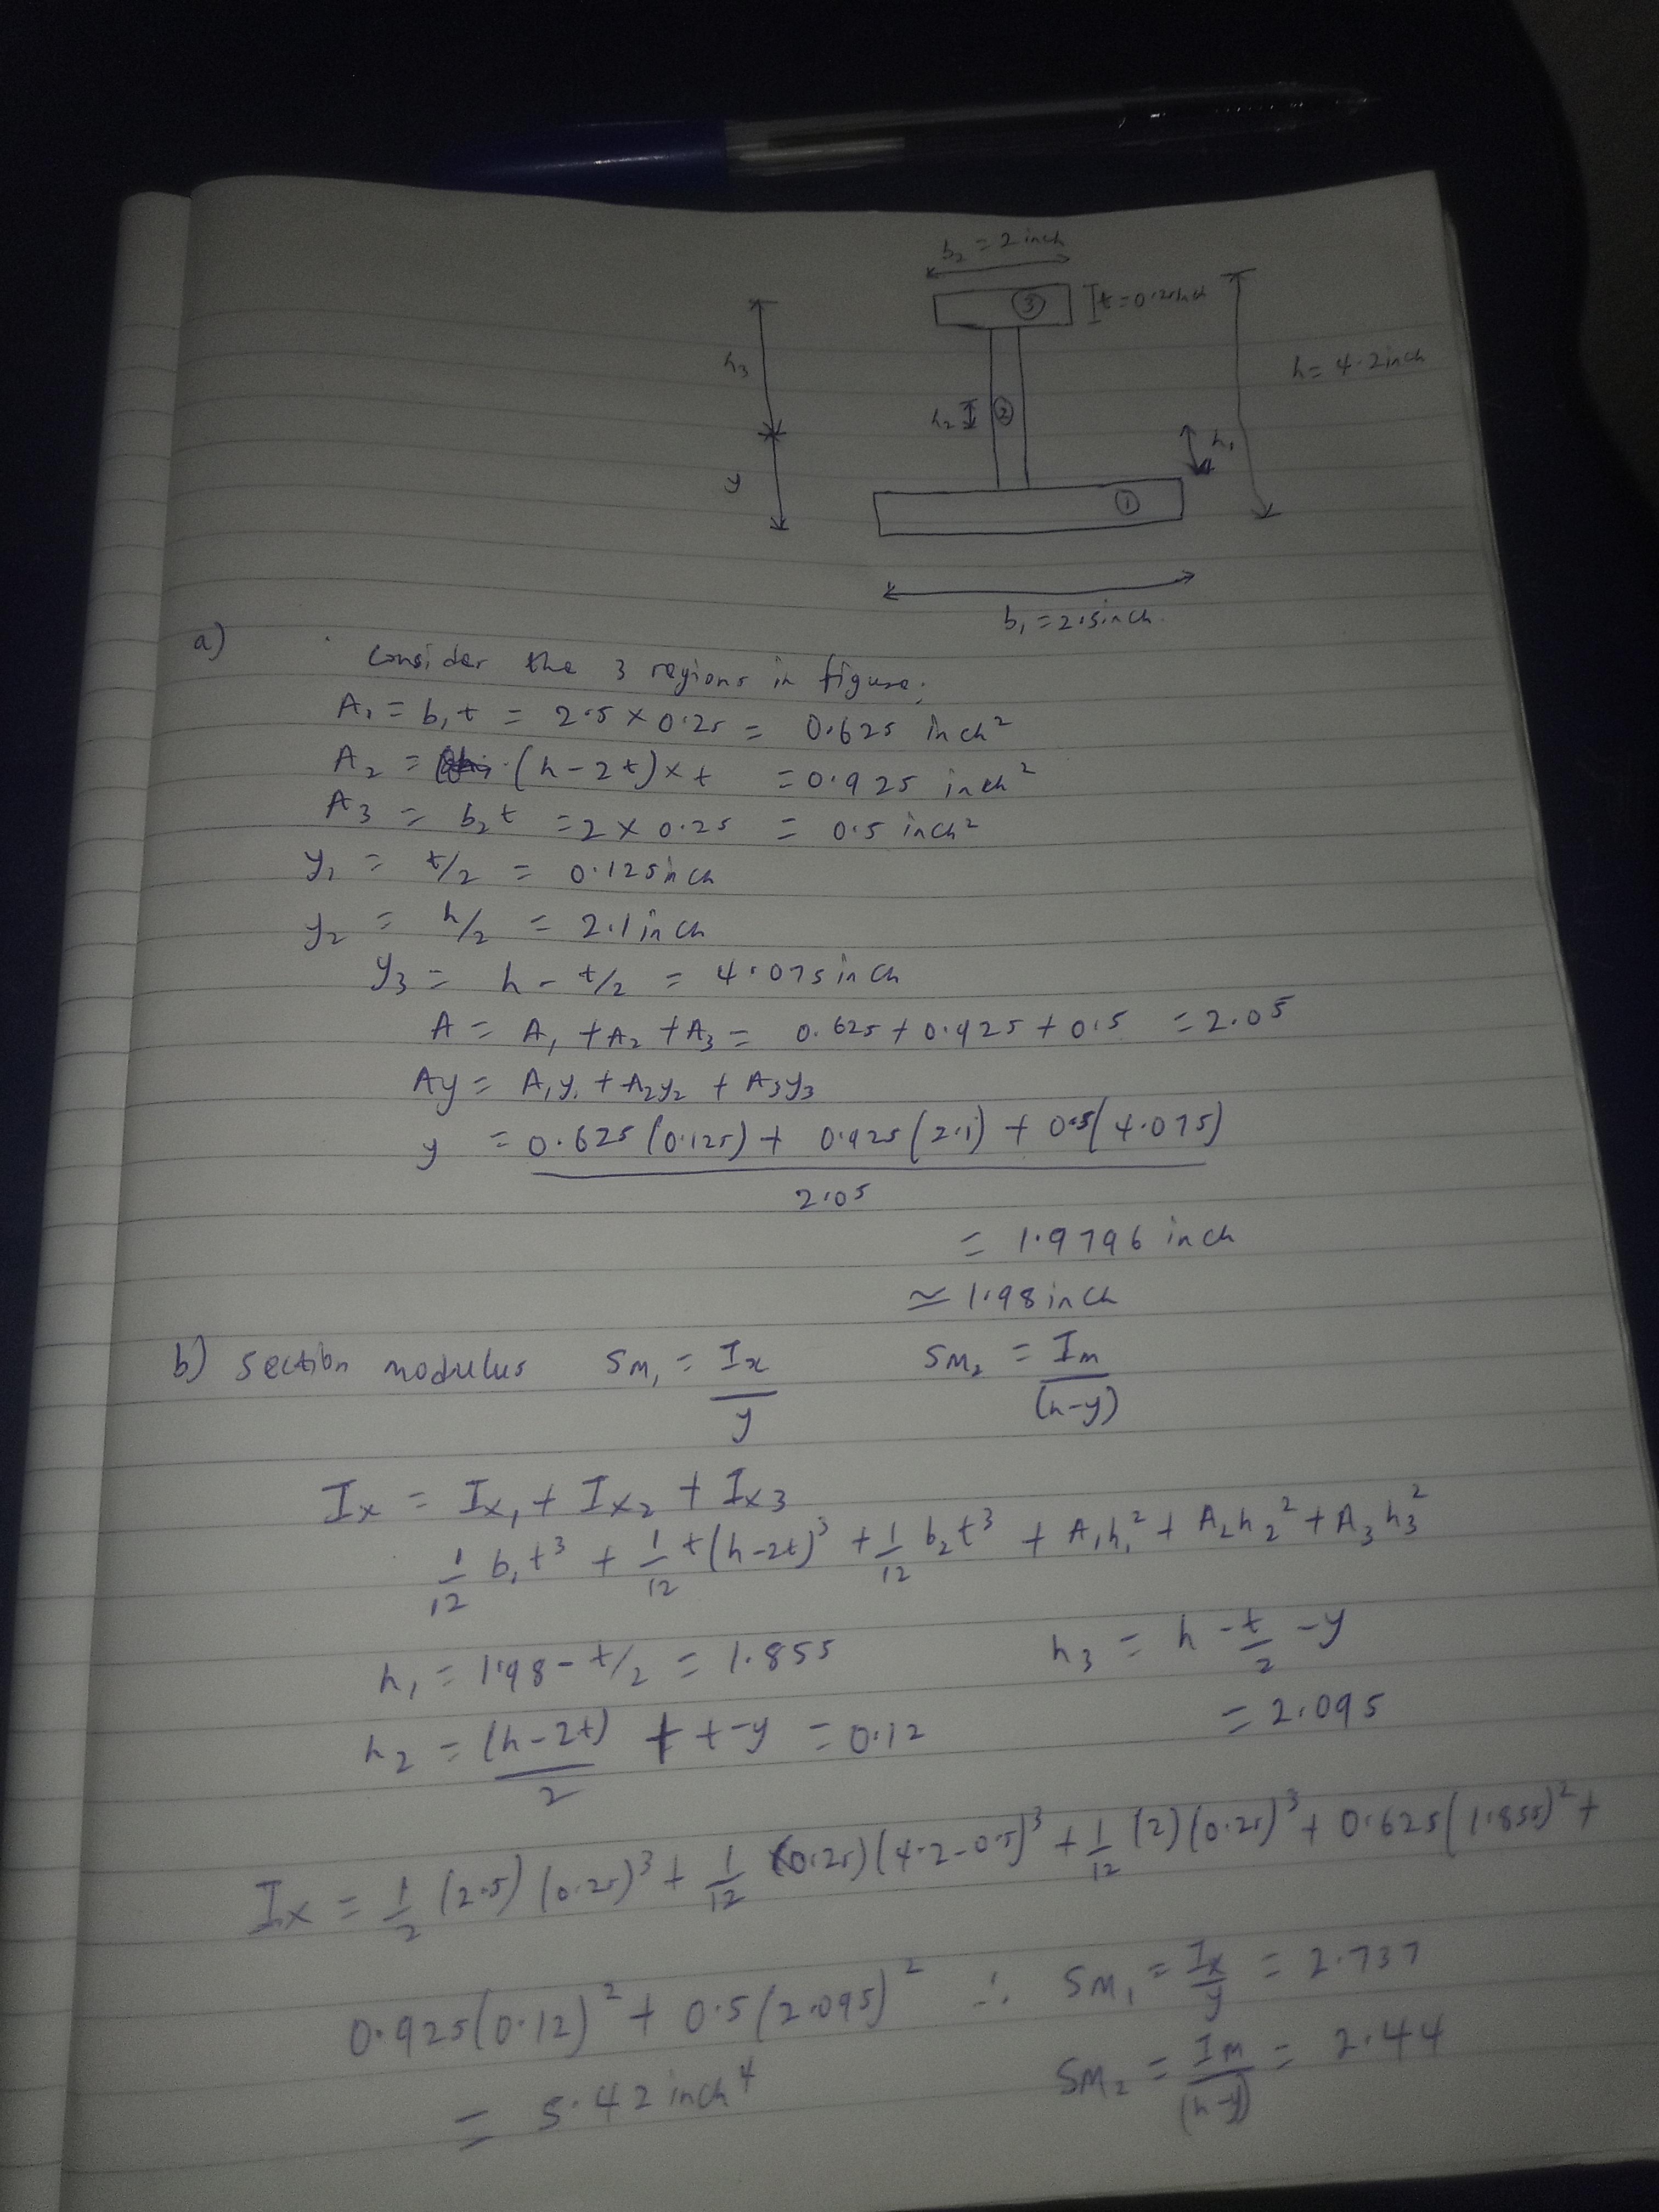 b₂ = 2 inch
③
t = 0.25 inch
h₃
h = 4.2 inch
h₂ ②
h₁
y
①
b₁ = 2.5 inch.
a)
Consider the 3 regions in figure;
A₁ = b₁t = 2.5 × 0.25 = 0.625 inch²
A₂ = (h - 2t) × t = 0.925 inch²
A3 = b₂t = 2 × 0.25 = 0.5 inch²
y₁ = t/2 = 0.125 inch
y₂ = h/2 = 2.1 inch
y₃ = h - t/2 = 4.075 inch
A = A₁ + A₂ + A₃ = 0.625 + 0.925 + 0.5 = 2.05
Ay = A₁y₁ + A₂y₂ + A₃y₃
y = 0.625(0.125) + 0.925(2.1) + 0.5(4.075)
2.05
= 1.9796 inch
≃ 1.98 inch
b) section modulus SM₁ = Ix / y SM₂ = Im / (h-y)
Ix = Ix₁ + Ix₂ + Ix3
1/12 b₁t³ + 1/12 t(h-2t)³ + 1/12 b₂t³ + A₁h₁² + A₂h₂² + A₃h₃²
h₁ = 1.98 - t/2 = 1.855 h₃ = h - t/2 - y
h₂ = (h-2t)/2 + t - y = 0.12 = 2.095
Ix = 1/2 (2.5)(0.25)³ + 1/12 (0.25)(4.2-0.5)³ + 1/12 (2)(0.25)³ + 0.625(1.855)² +
0.925(0.12)² + 0.5(2.095)² ∴ SM₁ = Ix/y = 2.737
= 5.42 inch⁴ SM₂ = Im/(h-y) = 2.44